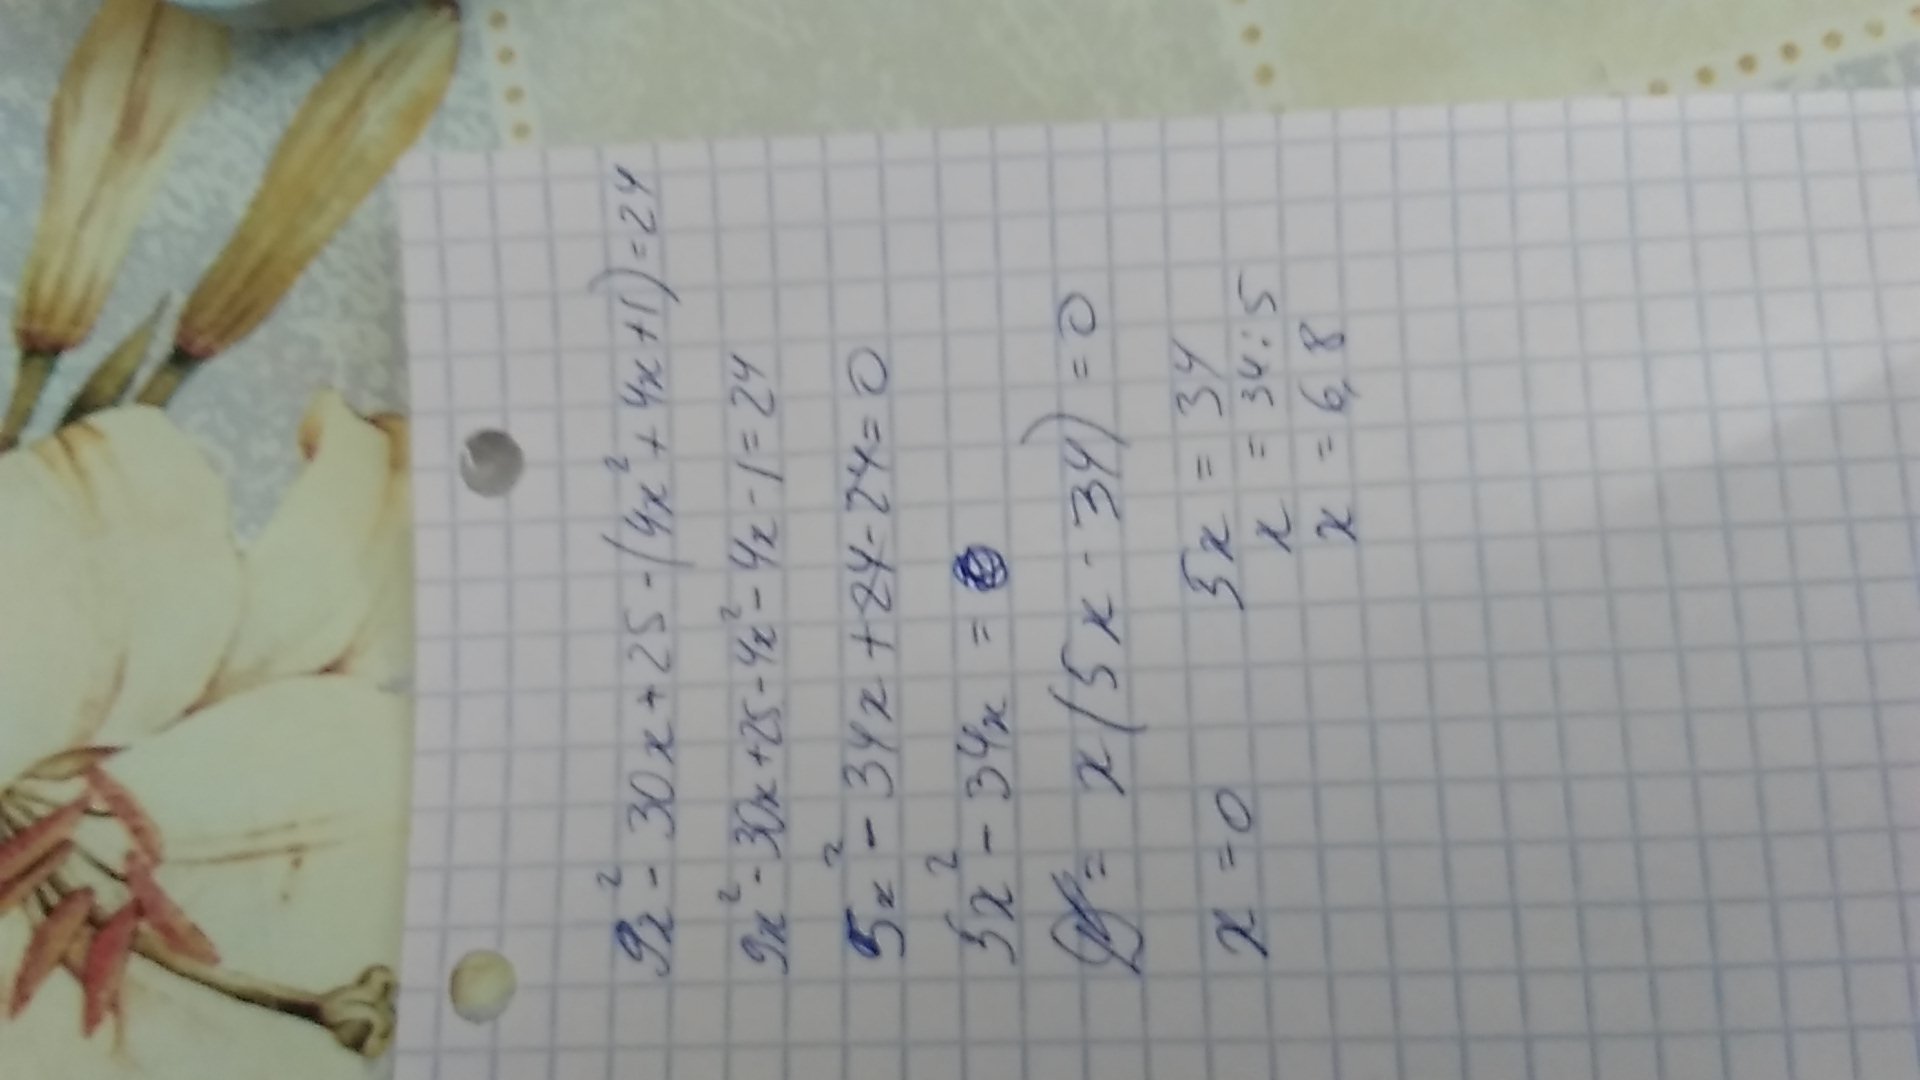 9x² - 30x + 25 - (4x² + 4x + 1) = 24
9x² - 30x + 25 - 4x² - 4x - 1 = 24
5x² - 34x + 24 - 24 = 0
5x² - 34x =
= x(5x - 34) = 0
x = 0 5x = 34
x = 34 : 5
x = 6,8